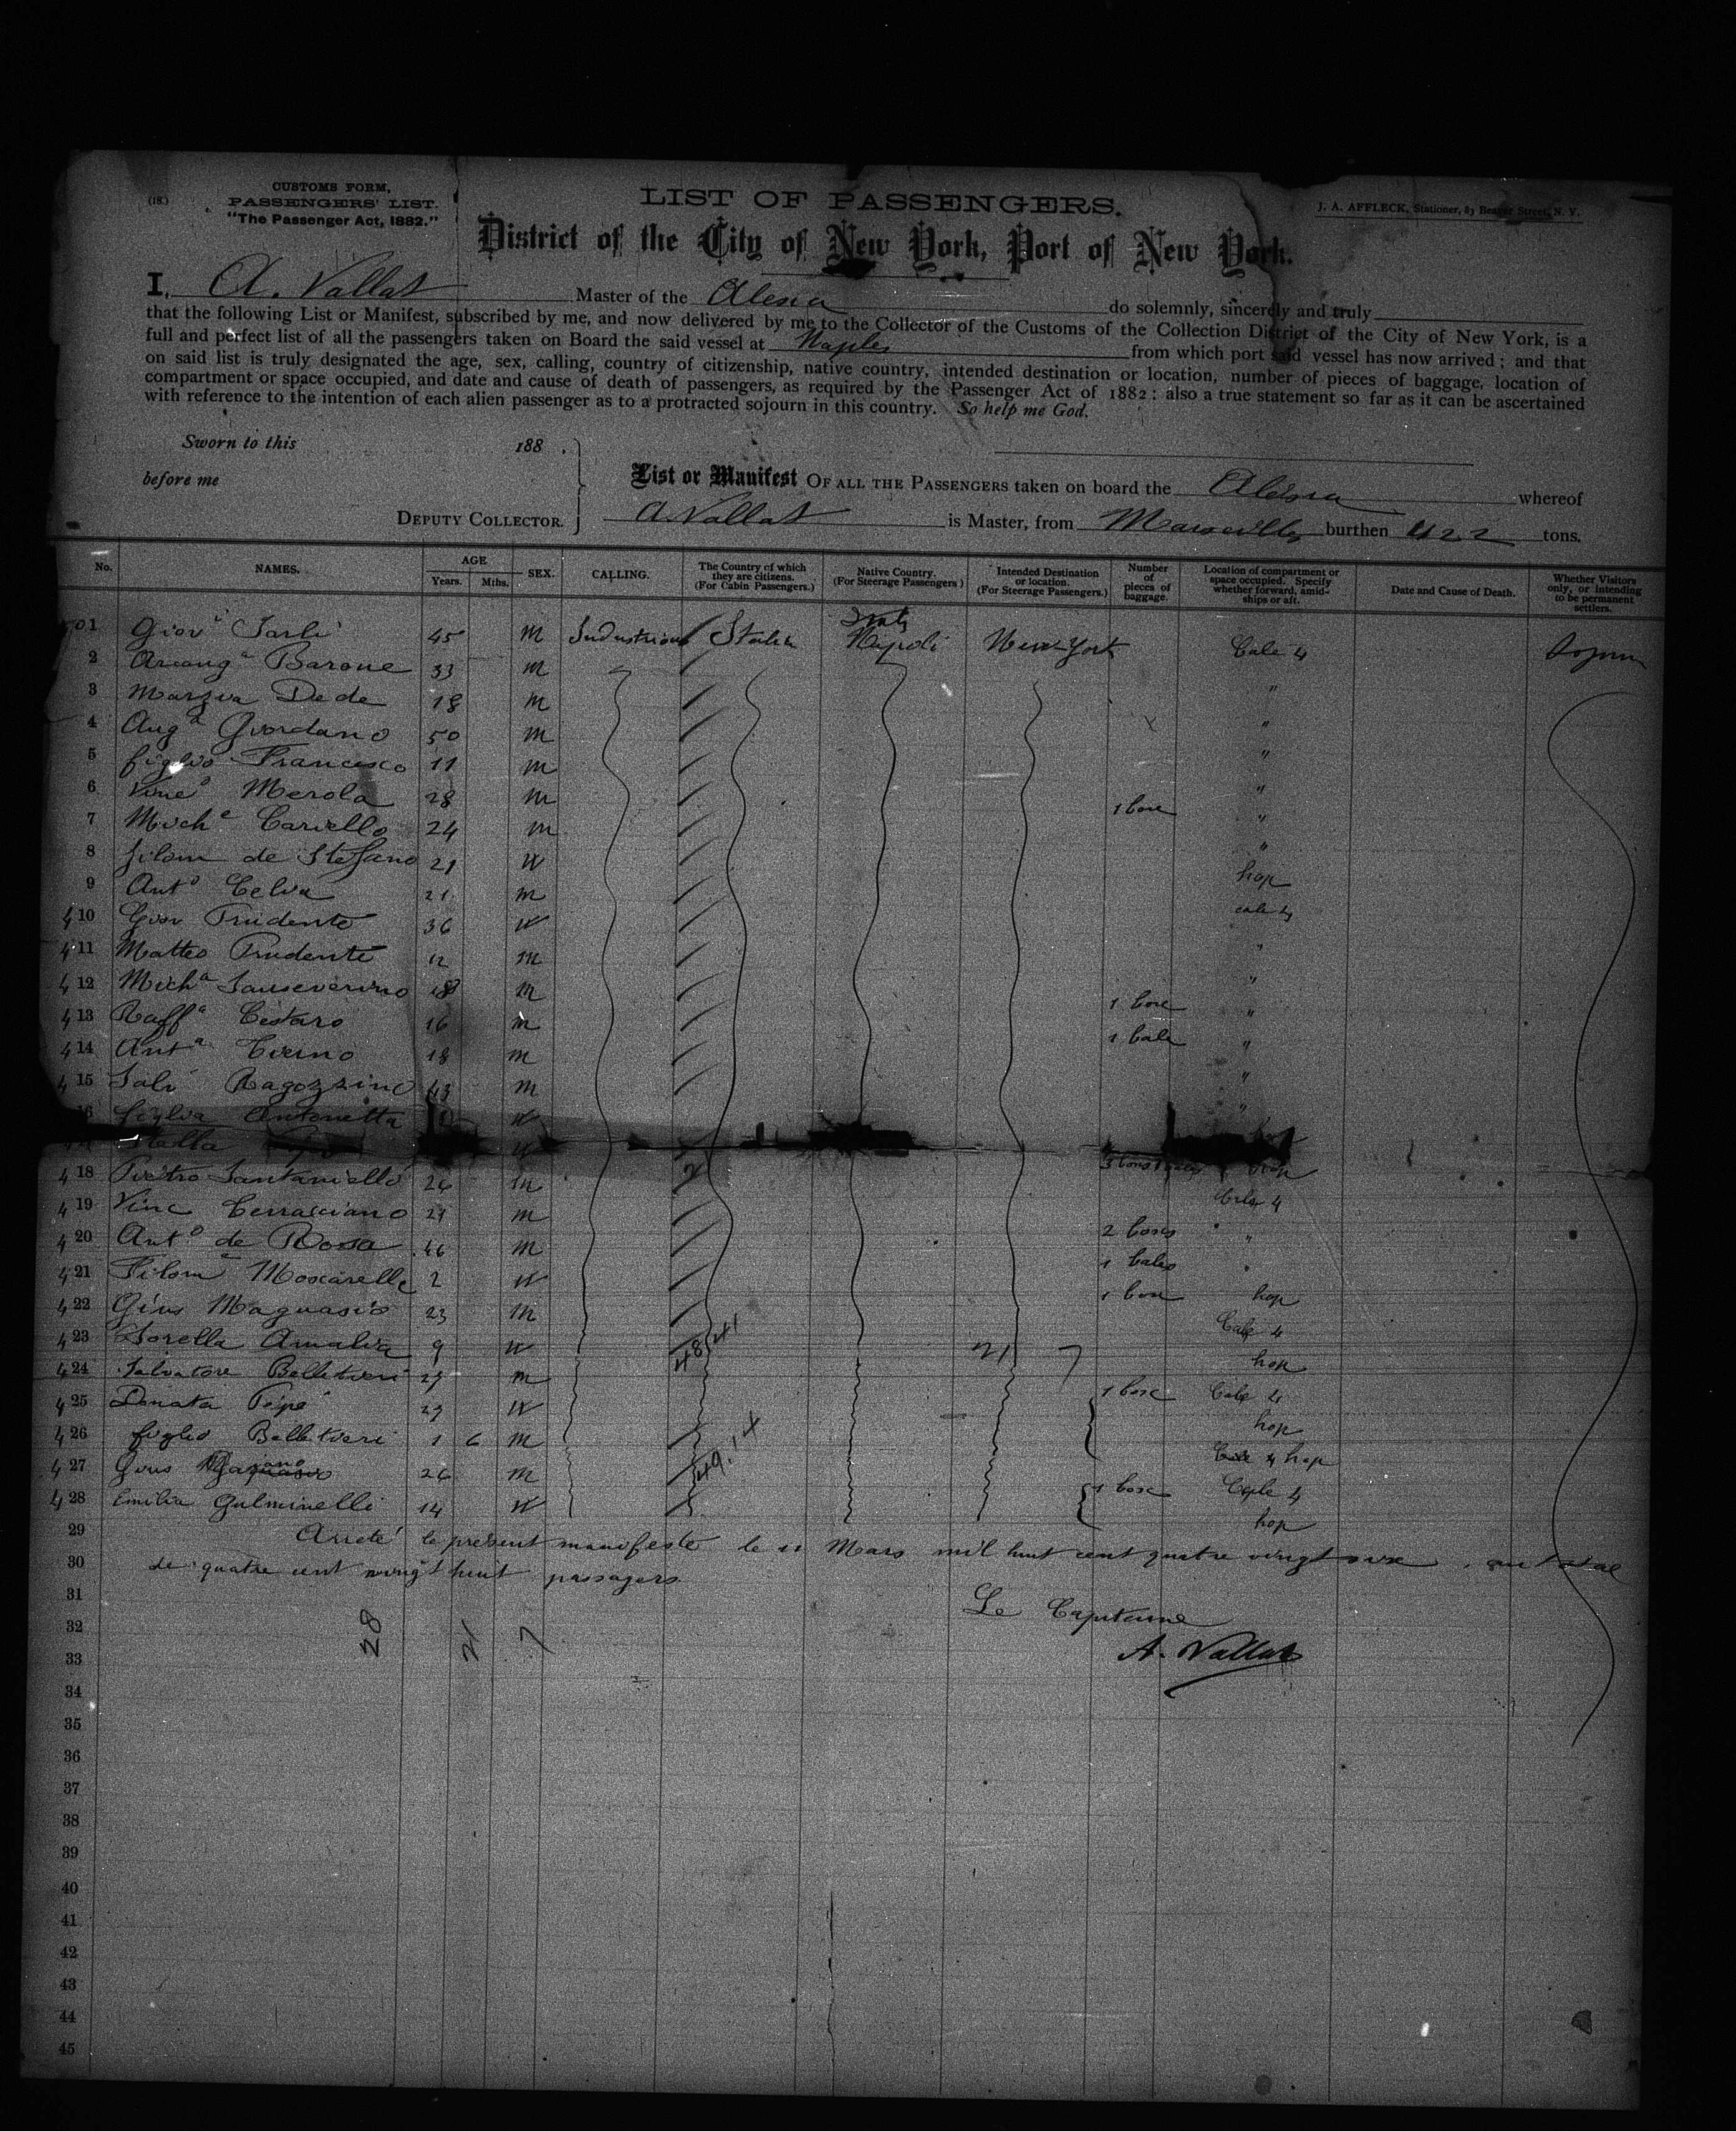 (18.)
CUSTOMS FORM,
PASSENGERS' LIST.
"The Passenger Act, 1882."
LIST OF PASSENGERS.
J. A. AFFLECK, Stationer, 83 Beaver Street, N. Y.
District of the City of New York, Port of New York.
I, A. Vallat Master of the Alesia do solemnly, sincerely and truly
that the following List or Manifest, subscribed by me, and now delivered by me to the Collector of the Customs of the Collection District of the City of New York, is a
full and perfect list of all the passengers taken on Board the said vessel at Naples from which port said vessel has now arrived; and that
on said list is truly designated the age, sex, calling, country of citizenship, native country, intended destination or location, number of pieces of baggage, location of
compartment or space occupied, and date and cause of death of passengers, as required by the Passenger Act of 1882: also a true statement so far as it can be ascertained
with reference to the intention of each alien passenger as to a protracted sojourn in this country. So help me God.
Sworn to this 188 .
before me
DEPUTY COLLECTOR.
List or Manifest OF ALL THE PASSENGERS taken on board the Alesia whereof
A. Vallat is Master, from Marseilles burthen tons.
No. NAMES. AGE Years. Mths. SEX. CALLING. The Country of which they are citizens. (For Cabin Passengers.) Native Country. (For Steerage Passengers) Intended Destination or location. (For Steerage Passengers.) Number of pieces of baggage. Location of compartment or space occupied. Specify whether forward, amidships or aft. Date and Cause of Death. Whether Visitors only, or intending to be permanent settlers.
1 Giov Sarli 45 m Italia Napoli New-York Cale 4
2 Arcang Barone 33 m "
3 Dede 18 m "
4 Ang Giordano 50 m "
5 figlio Francesco 11 m "
6 Merola 28 m 1 boxe "
7 Mich Cariello 24 m "
8 filom de Stefano 21 hop
9 Ant Celva 21 m cale 4
410 Giov Prudente 36 "
411 Matteo Prudente 12 m "
412 Mich Sanseverino 18 m 1 boxe "
413 Raff Cestaro 16 m 1 bale "
414 Ant Tierno 18 m "
415 Ragozzino 43 m "
16 figlia Antonetta
Stella hop
418 Pietro Santaniello 26 m Cale 4
419 Vinc Terrasciano 21 m 2 boxes "
420 Ant de Rosa 46 m 1 bales
421 Filom Moscarelle 2 1 boxe hop
422 Gius Maguasio 23 m Cale 4
423 Sorella Amalia 9 21 7 hop
424 Salvatore Bellitieri 29 m 1 boxe Cale 4
425 Donata Pepe 29 hop
426 figlio Bellitieri 1 6 m hop
427 Gius 26 m 1 boxe Cale 4
428 Emilia Gulminelli 14 hop
29 Arreté le présent manifeste le 11 Mars mil huit cent quatre vingt onze, au total
30 de quatre cent vingt huit passagers
31 Le Capitaine
32 28 21 7
33 A. Vallat
34
35
36
37
38
39
40
41
42
43
44
45